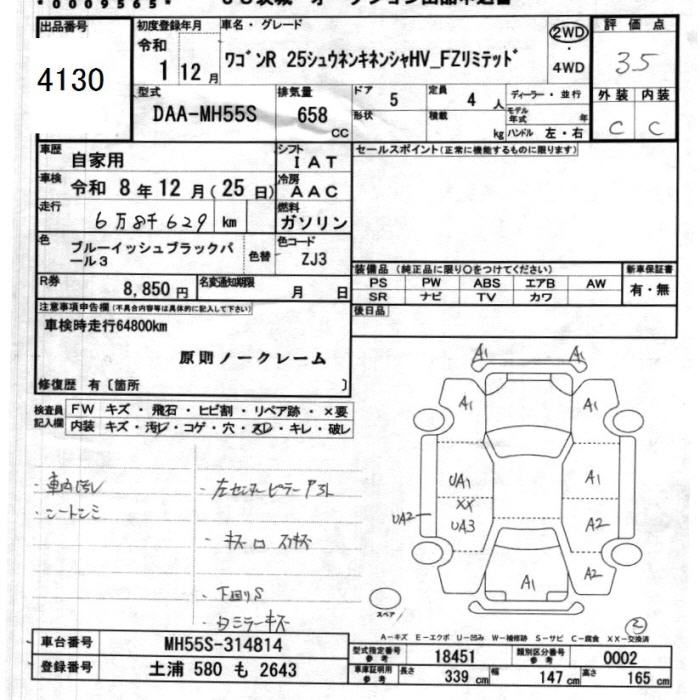 *0009565*
出品番号
4130
初度登録年月
令和
1 12月
車名・グレード
ワゴンR 25シュウネンキネンシャHV_FZリミテッド
2WD
・
4WD
評価点
3.5
外装 内装
C C
型式
DAA-MH55S
排気量
658
CC
ドア
5
形状
定員
4 人
積載
kg
ディーラー・並行
モデル年式 年
ハンドル 左・右
車歴
自家用
シフト
IAT
車検
令和 8年12月(25日)
冷房
AAC
走行
6万8千629 km
燃料
ガソリン
色
ブルーイッシュブラックパール3
色替
色コード
ZJ3
R券
8,850円
名変通知期限
月 日
セールスポイント(正常に機能するものに限ります)
装備品(純正品に限り○をつけてください)
PS PW ABS エアB AW
SR ナビ TV カワ
新車保証書
有・無
後日品
注意事項申告欄(不具合内容等は具体的に記入して下さい)
車検時走行64800km
原則ノークレーム
修復歴 有〔箇所 〕
検査員記入欄
FW キズ・飛石・ヒビ割・リペア跡・×要
内装 キズ・汚レ・コゲ・穴・スレ・キレ・破レ
・車内汚レ
・左センターピラーアタレ
・下回りS
A1 A1
A1 A1
UA1 A1
XX
UA2 UA3 A2
A1 A2
スペア
2
A-キズ E-エクボ U-凹み W-補修跡 S-サビ C-腐食 XX-交換済
車台番号
MH55S-314814
登録番号
土浦 580 も 2643
型式指定番号
参考
18451
類別区分番号
参考
0002
車庫証明用
参考
長さ 339 cm 幅 147 cm 高さ 165 cm